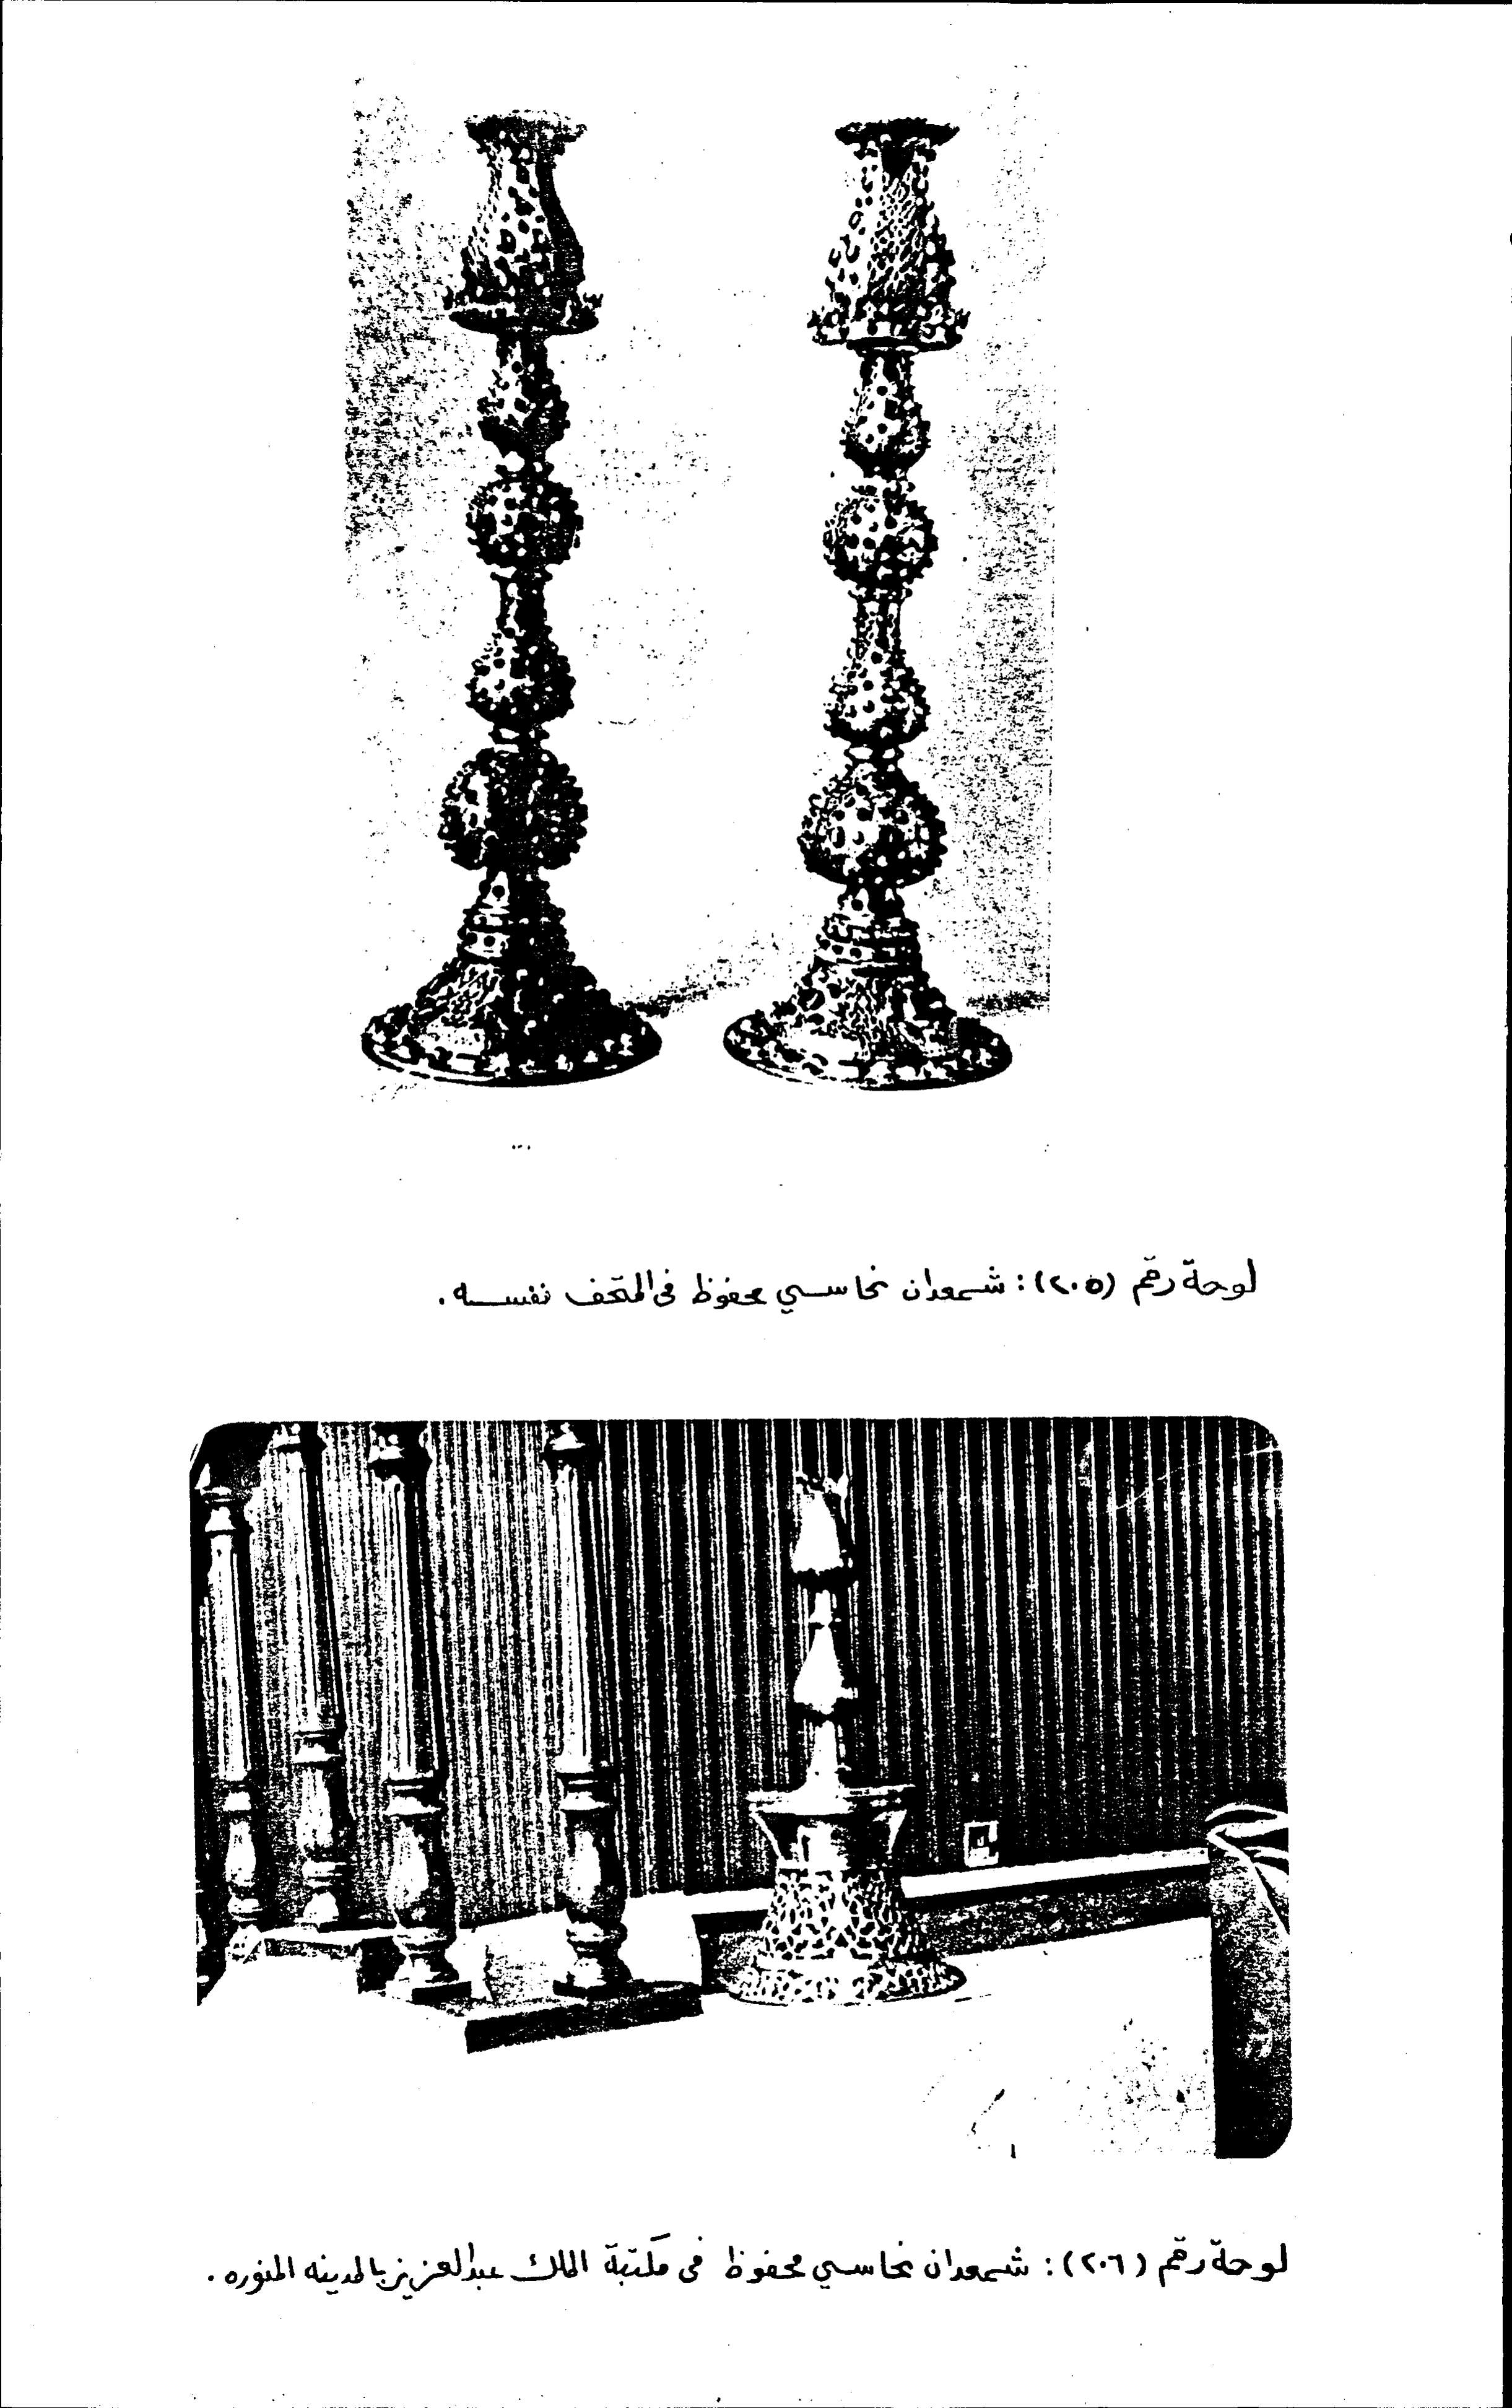 لوحة رقم (٢٠٥) : شمعدان نحاسي محفوظ فى المتحف نفسه .
لوحة رقم (٢٠٦) : شمعدان نحاسي محفوظ فى مكتبة الملك عبدالعزيز بالمدينه المنوره .